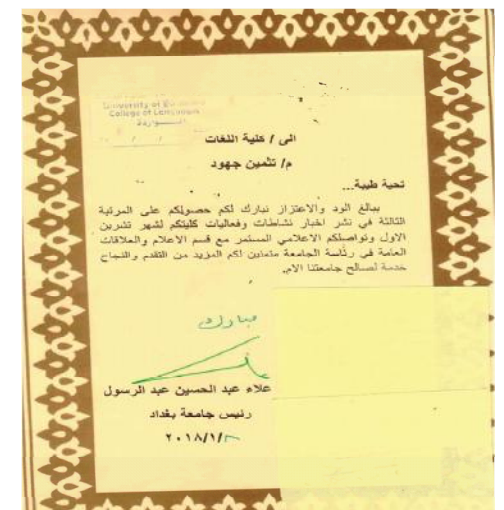 University of
College of Languages
الى / كلية اللغات
م/ تثمين جهود
تحية طيبة...
ببالغ الود والاعتزاز نبارك لكم حصولكم على المرتبة
الثالثة في نشر اخبار نشاطات وفعاليات كليتكم لشهر تشرين
الاول وتواصلكم الاعلامي المستمر مع قسم الاعلام والعلاقات
العامة في رئاسة الجامعة متمنين لكم المزيد من التقدم والنجاح
خدمة لصالح جامعتنا الام.
مبارك
علاء عبد الحسين عبد الرسول
رئيس جامعة بغداد
٢٠١٨/١/